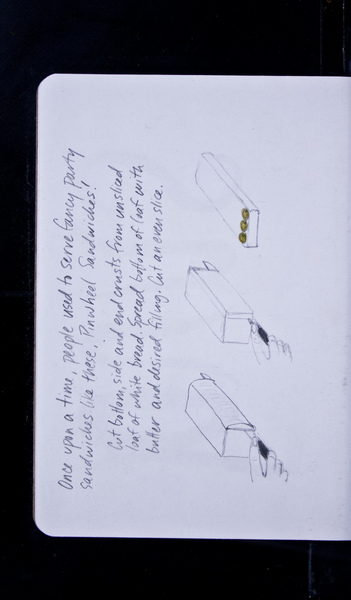 Once upon a time, people used to serve fancy party
sandwiches like these, Pinwheel Sandwiches!
Cut bottom, side and end crusts from unsliced
loaf of white bread. Spread bottom of loaf with
butter and desired filling. Cut an even slice.